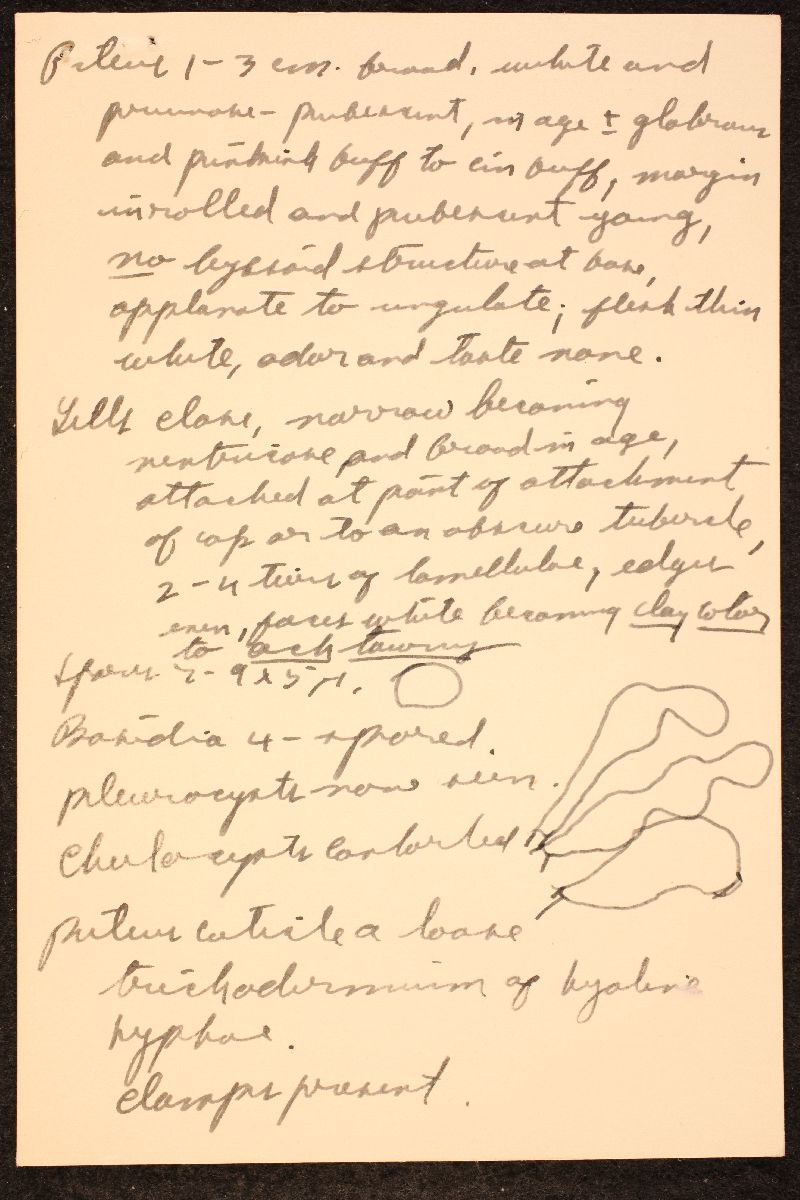 Pileus 1-3 cm. broad, white and
pruinose-pubescent, in age ± glabrous
and pinkish buff to cin buff, margin
inrolled and pubescent young,
no byssoid structure at base,
applanate to ungulate; flesh thin
white, odor and taste none.
Gills close, narrow becoming
ventricose and broad in age,
attached at point of attachment
of cap or to an obscure tubercle,
2-4 tiers of lamellulae, edges
even, faces white becoming clay color
to ack tawny
Spores 7-9 x 5 μ.
Basidia 4-spored.
pleurocysts none seen.
Cheilocysts contorted
pileus cuticle a loose
trichodermium of hyaline
hyphae.
clamps present.